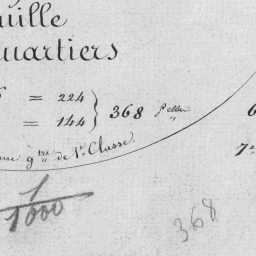 uille
uartiers
= 224
= 144 } 368
6
de 1e. Classe
7
1/1000
368